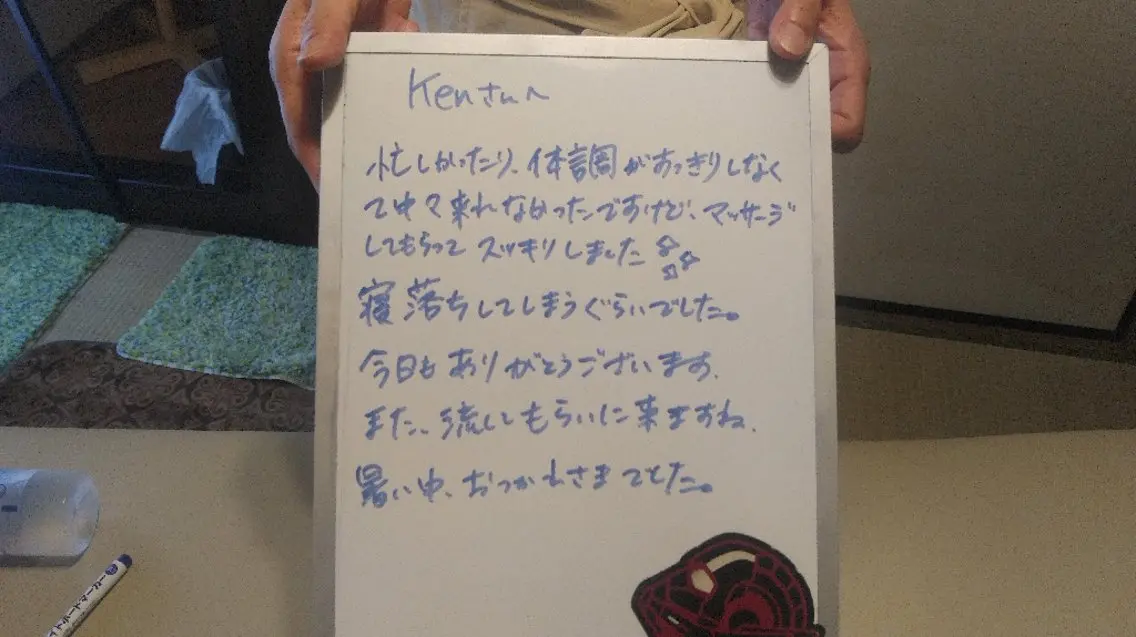 Kenさんへ
忙しかったり、体調がすっきりしなく
て中々来れなかったんですけど、マッサージ
してもらって スッキリしました
寝落ちしてしまうぐらいでした。
今日も ありがとうございます。
また、流してもらいに来ますね。
暑い中、おつかれさまでした。